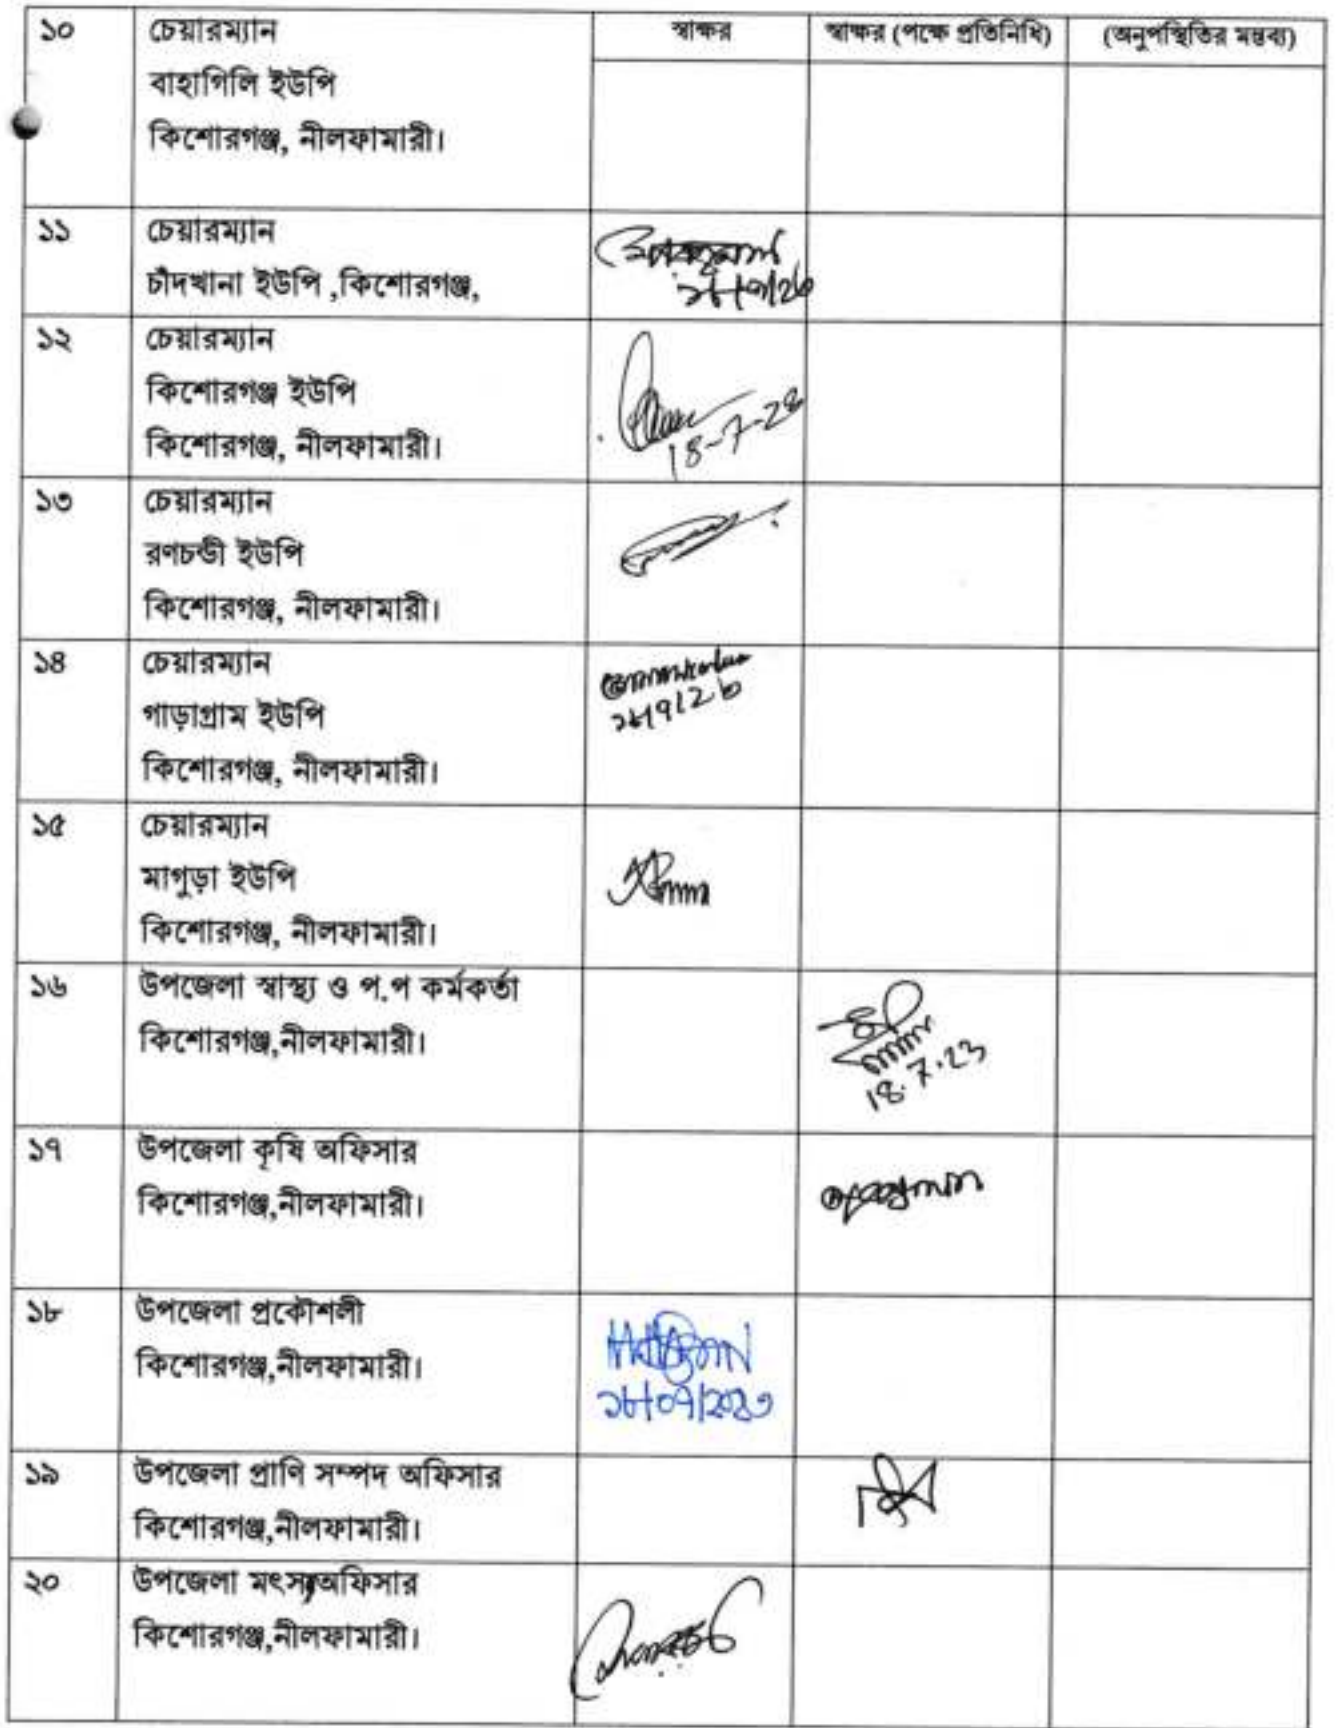 ১০ চেয়ারম্যান স্বাক্ষর স্বাক্ষর (পক্ষে প্রতিনিধি) (অনুপস্থিতির মন্তব্য)
বাহাগিলি ইউপি
কিশোরগঞ্জ, নীলফামারী।
১১ চেয়ারম্যান
চাঁদখানা ইউপি ,কিশোরগঞ্জ,
১৮/৭/২৩
১২ চেয়ারম্যান
কিশোরগঞ্জ ইউপি
কিশোরগঞ্জ, নীলফামারী।
18-7-23
১৩ চেয়ারম্যান
রণচন্ডী ইউপি
কিশোরগঞ্জ, নীলফামারী।
১৪ চেয়ারম্যান
গাড়াগ্রাম ইউপি
১৮/৭/২৩
কিশোরগঞ্জ, নীলফামারী।
১৫ চেয়ারম্যান
মাগুড়া ইউপি
কিশোরগঞ্জ, নীলফামারী।
১৬ উপজেলা স্বাস্থ্য ও প.প কর্মকর্তা
কিশোরগঞ্জ,নীলফামারী।
18.7.23
১৭ উপজেলা কৃষি অফিসার
কিশোরগঞ্জ,নীলফামারী।
১৮ উপজেলা প্রকৌশলী
কিশোরগঞ্জ,নীলফামারী।
১৮/০৭/২০২৩
১৯ উপজেলা প্রাণি সম্পদ অফিসার
কিশোরগঞ্জ,নীলফামারী।
২০ উপজেলা মৎস্যঅফিসার
কিশোরগঞ্জ,নীলফামারী।